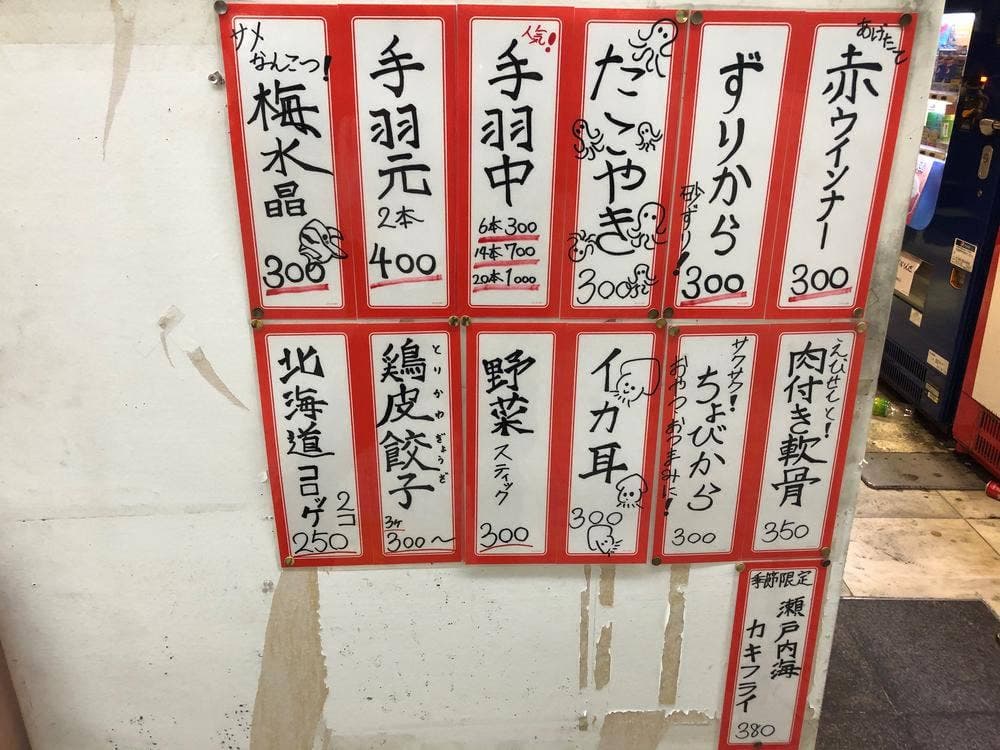 あげたて
赤ウインナー
300
ずりから
砂ずり!
300
たこやき
300
人気!
手羽中
6本300
14本700
20本1000
手羽元
2本
400
サメ
なんこつ!
梅水晶
300
肉付き軟骨
350
サクサク!
ちょびから
おやつ おつまみに!
300
イカ耳
300
野菜スティック
300
鶏皮餃子
とりかわぎょうざ
3ヶ
300〜
北海道コロッケ
2コ
250
季節限定
瀬戸内海
カキフライ
380